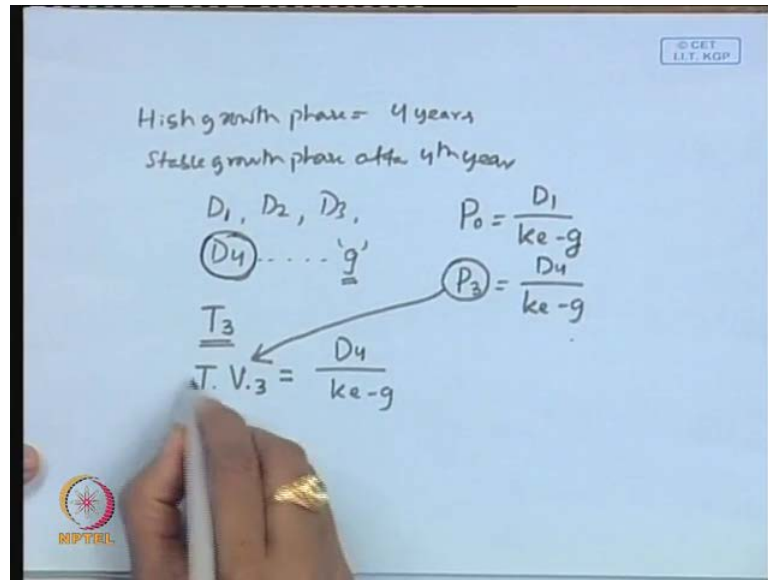 © CET
I.I.T. KGP
High growth phase = 4 years
Stable growth phase after 4th year
D1, D2, D3,
D4 ..... 'g'
P0 = D1 / ke - g
P3 = D4 / ke - g
T3
T. V.3 = D4 / ke - g
NPTEL